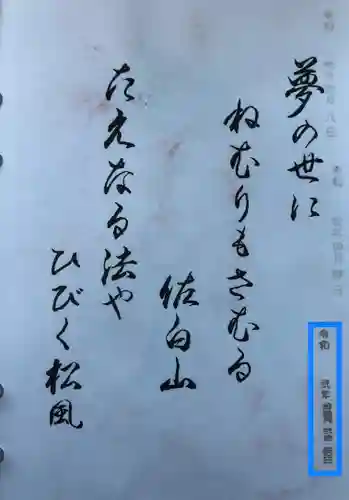 夢の世に
ねむりもさむる
佐白山
たえなる法や
ひびく松風
令和 弐年